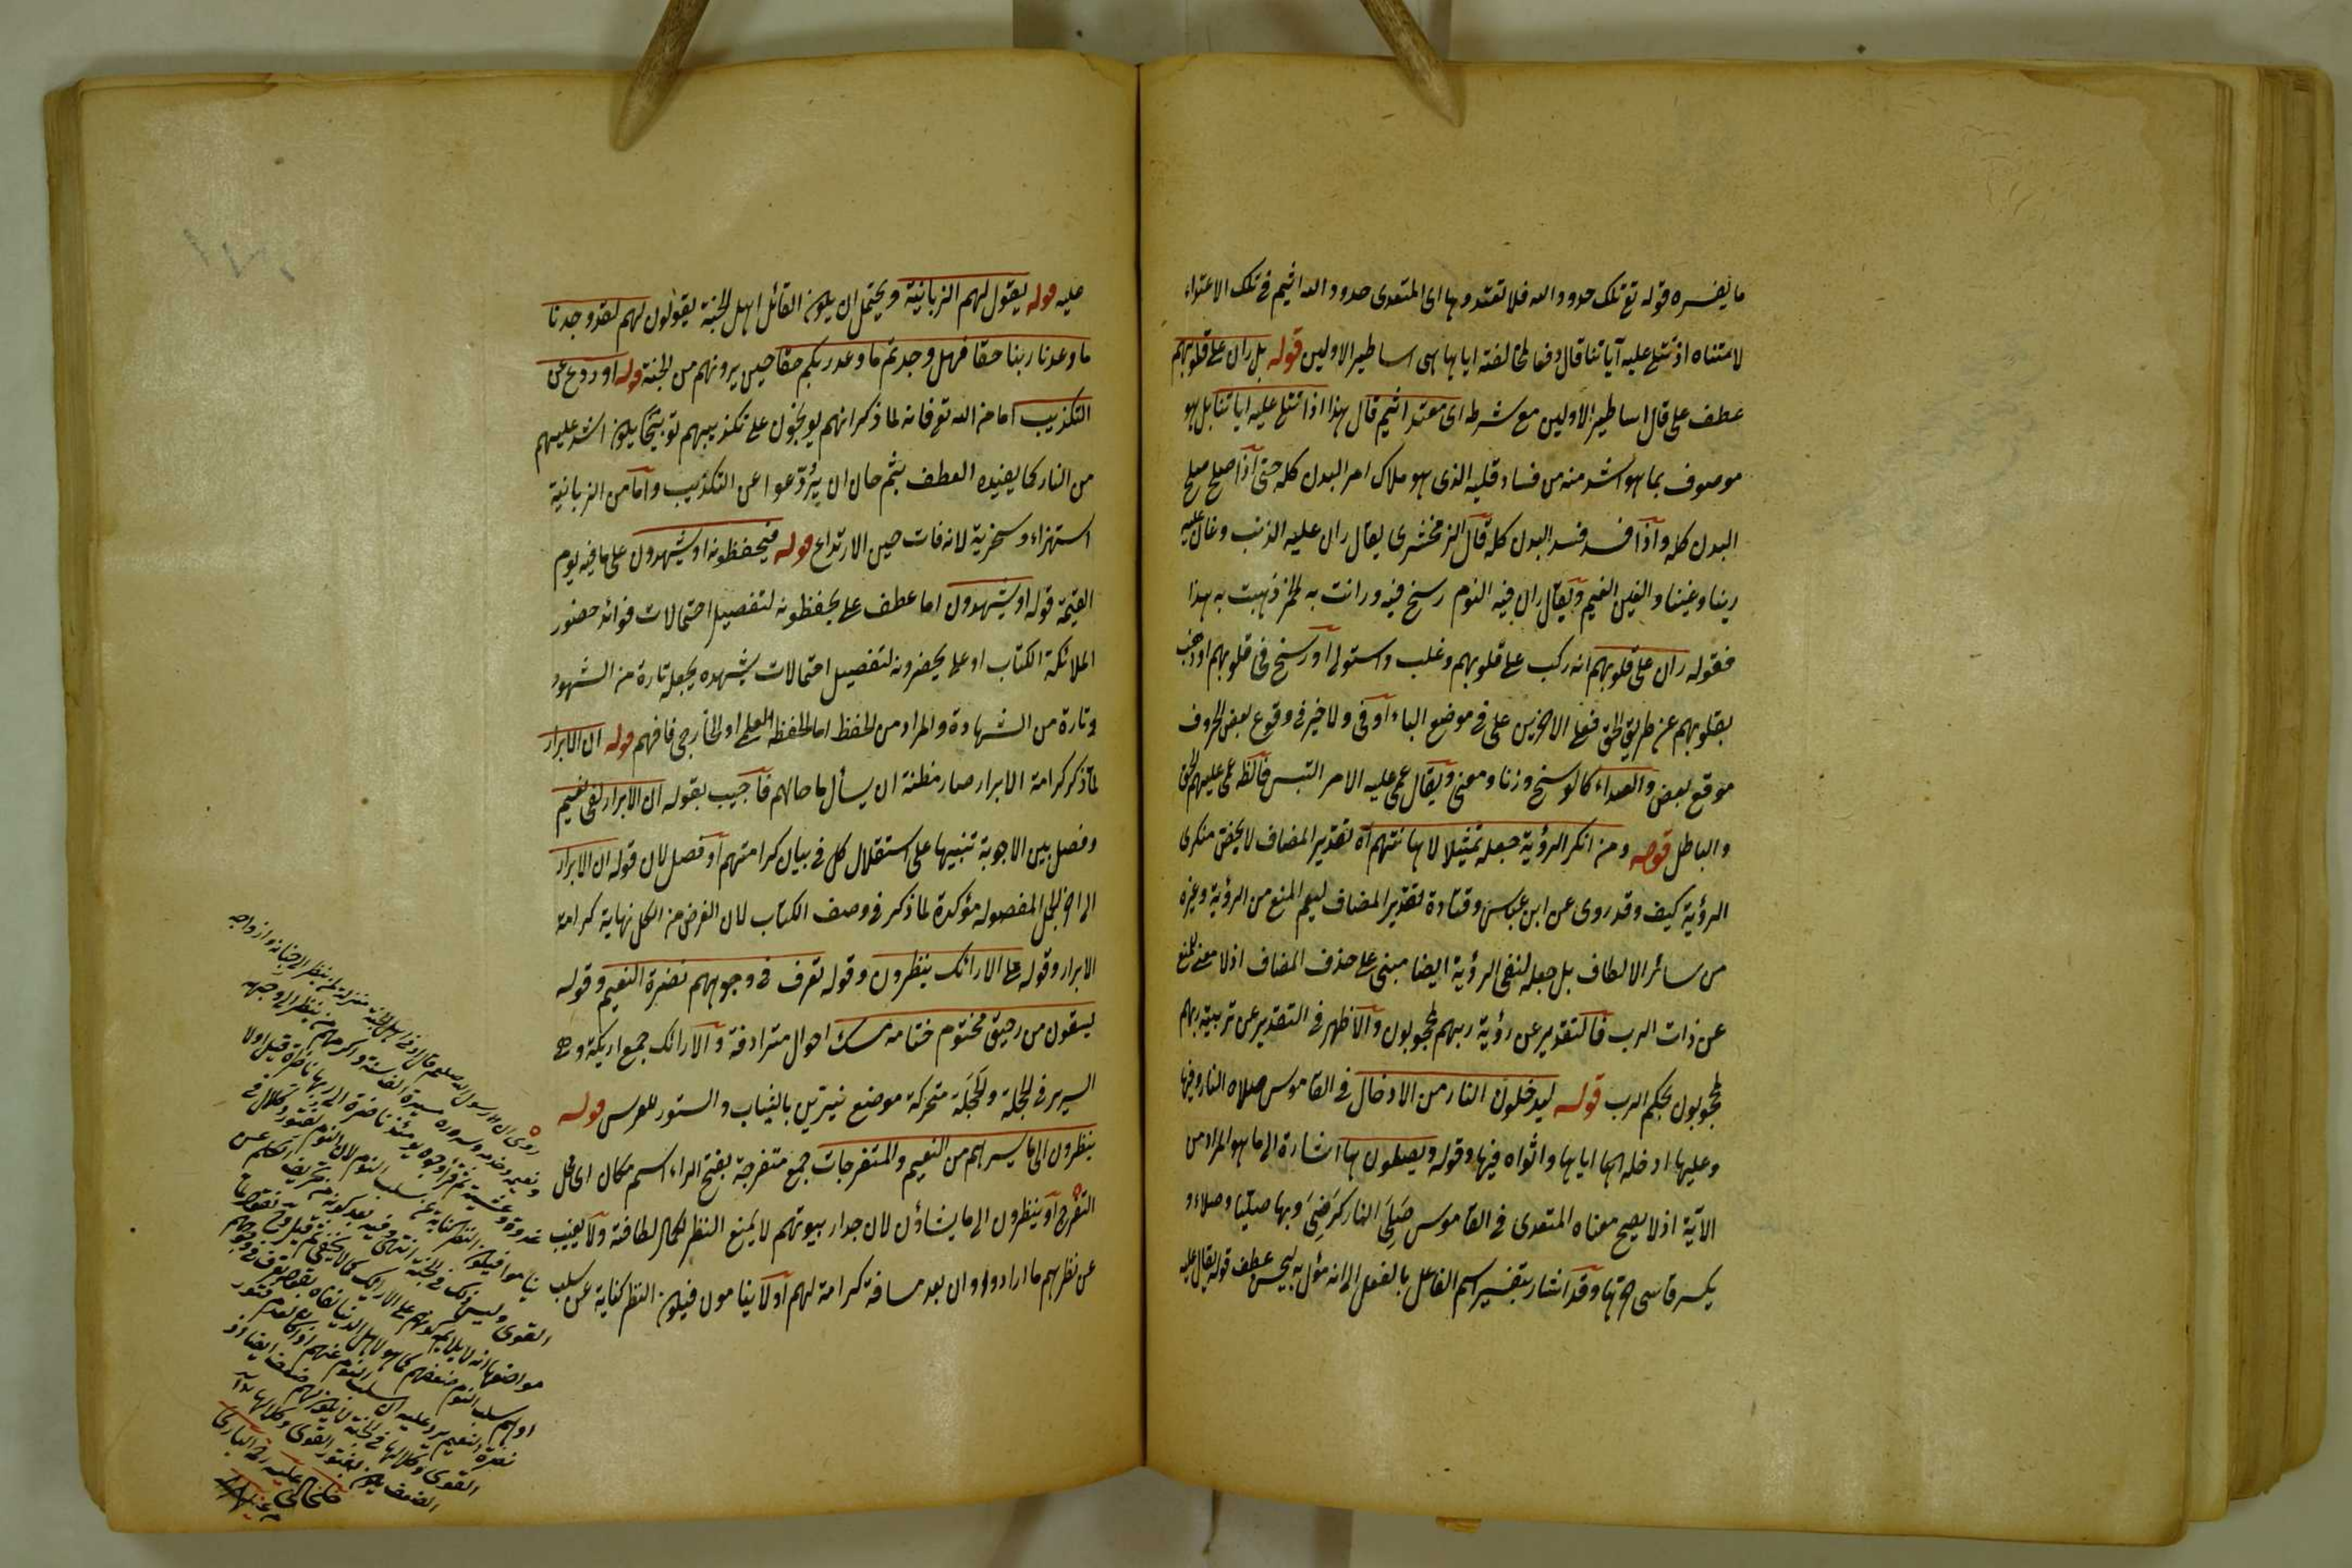 ما يفسره قوله تع تلك حدود الله فلا تعتدوها اى المتعدى حدود الله اثيم فى تلك الاعتداء
لامتناه اذ تتلى عليه آياتنا قال دفعا لمخالفته اياها هى اساطير الاولين قوله بل ران على قلوبهم
عطف على قال اساطير الاولين مع شرطه اى معتد اثيم قال هذا اذا تتلى عليه اياتنا بل هو
موصوف بما هو اشد منه من فساد قلبه الذى هو ملاك امر البدن كله حتى اذا صلح صلح
البدن كله واذا فسد فسد البدن كله قال الزمخشرى يقال ران عليه الذنب وغان عليه
رينا وغينا والغين الغيم ويقال ران فيه النوم رسخ فيه ورانت به الخمر ذهبت به هذا
فقوله ران على قلوبهم انه ركب على قلوبهم وغلب واستولى او رسخ فى قلوبهم او ذهب
بقلوبهم عن طريق الحق فعلى الاخيرين على فى موضع الباء او فى ولا خير فى وقوع بعض الحروف
موقع بعض والصداء كالوسخ وزنا ومعنى ويقال عمى عليه الامر التبس فالظ عمى عليهم الحق
والباطل قوله ومن انكر الرؤية جعله تمثيلا لاهانتهم اه تقدير المضاف لا يخص منكرى
الرؤية كيف وقد روى عن ابن عباس وقتادة تقدير المضاف ليعم المنع من الرؤية وغيره
من سائر الالطاف بل جعله لنفى الرؤية ايضا مبنى على حذف المضاف اذ لا معنى للمنع
عن ذات الرب فالتقدير عن رؤية ربهم لمحجوبون والاظهر فى التقدير عن تربيته ربهم
لمحجوبون بحكم الرب قوله ليدخلون النار من الادخال فى القاموس صلاه النار وفيها
وعليها ادخله اياها واثواه فيها وقوله ويصلون بها اشارة الى ما هو المراد من
الآية اذ لا يصح معناه المتعدى فى القاموس صَلِىَ النار كرَضِىَ وبها صليا وصلاء و
يكسر قاسى حرها وقد اشار بتفسير اسم الفاعل بالفعل الى انه مؤل به ليحسن عطف قوله يقال عليه
عليه قوله يقول لهم الزبانية ويحتمل ان يكون القائل اهل الجنة يقولون لهم لقد وجدنا
ما وعدنا ربنا حقا فهل وجدتم ما وعد ربكم حقا حين يرونهم من الجنة قوله او ردع عن
التكذيب اما من الله تع فانه لما ذكر انهم يوبخون على تكذيبهم توبيخا يكون اشد عليهم
من النار كما يفيده العطف بثم حان ان يرتدعوا عن التكذيب واما من الزبانية
استهزاء وسخرية لانه فات حين الارتداع قوله فيحفظونه او يشهدون على ما فيه يوم
القيمة قوله او يشهدون اما عطف على يحفظونه لتفصيل احتمالات فوائد حضور
الملائكة الكتاب او على يحضرونه لتفصيل احتمالات يشهده بجعله تارة من الشهود
وتارة من الشهادة والمراد من الحفظ اما الحفظ العلمى او الخارجى فافهم قوله ان الابرار
لما ذكر كرامة الابرار صار مظنة ان يسأل ما حالهم فاجيب بقوله ان الابرار لفى نعيم
وفصل بين الاجوبة تنبيها على استقلال كل فى بيان كرامتهم او فصل لان قوله ان الابرار
الى اخر الجمل المفصولة مؤكدة لما ذكر فى وصف الكتاب لان الغرض من الكل نهاية كرامة
الابرار وقوله على الارائك ينظرون وقوله تعرف فى وجوههم نضرة النعيم وقوله
يسقون من رحيق مختوم ختامه مسك احوال مترادفة والارائك جمع اريكة وهى
السرير فى الحجلة والحجلة متحركة موضع يزين بالثياب والستور للعرس قوله
ينظرون الى ما يسرهم من النعيم والمتفرجات جمع متفرجة بفتح الراء اسم مكان اى محل
التفرج او ينظرون الى ما يشاؤن لان جدار بيوتهم لا يمنع النظر لكمال لطافته ولا يغيب
عن نظرهم ما ارادوا وان بعد مسافة كرامة لهم او لا ينامون فيكون النظر كناية عن سلب
روى ان رسول الله صلعم قال ادنى اهل الجنة منزلة لمن ينظر الى جنانه وازواجه
ونعيمه وخدمه وسرره مسيرة الف سنة واكرمهم من ينظر الى وجهه
غدوة وعشية ثم قرأ وجوه يومئذ ناضرة الى ربها ناظرة قيل اولا